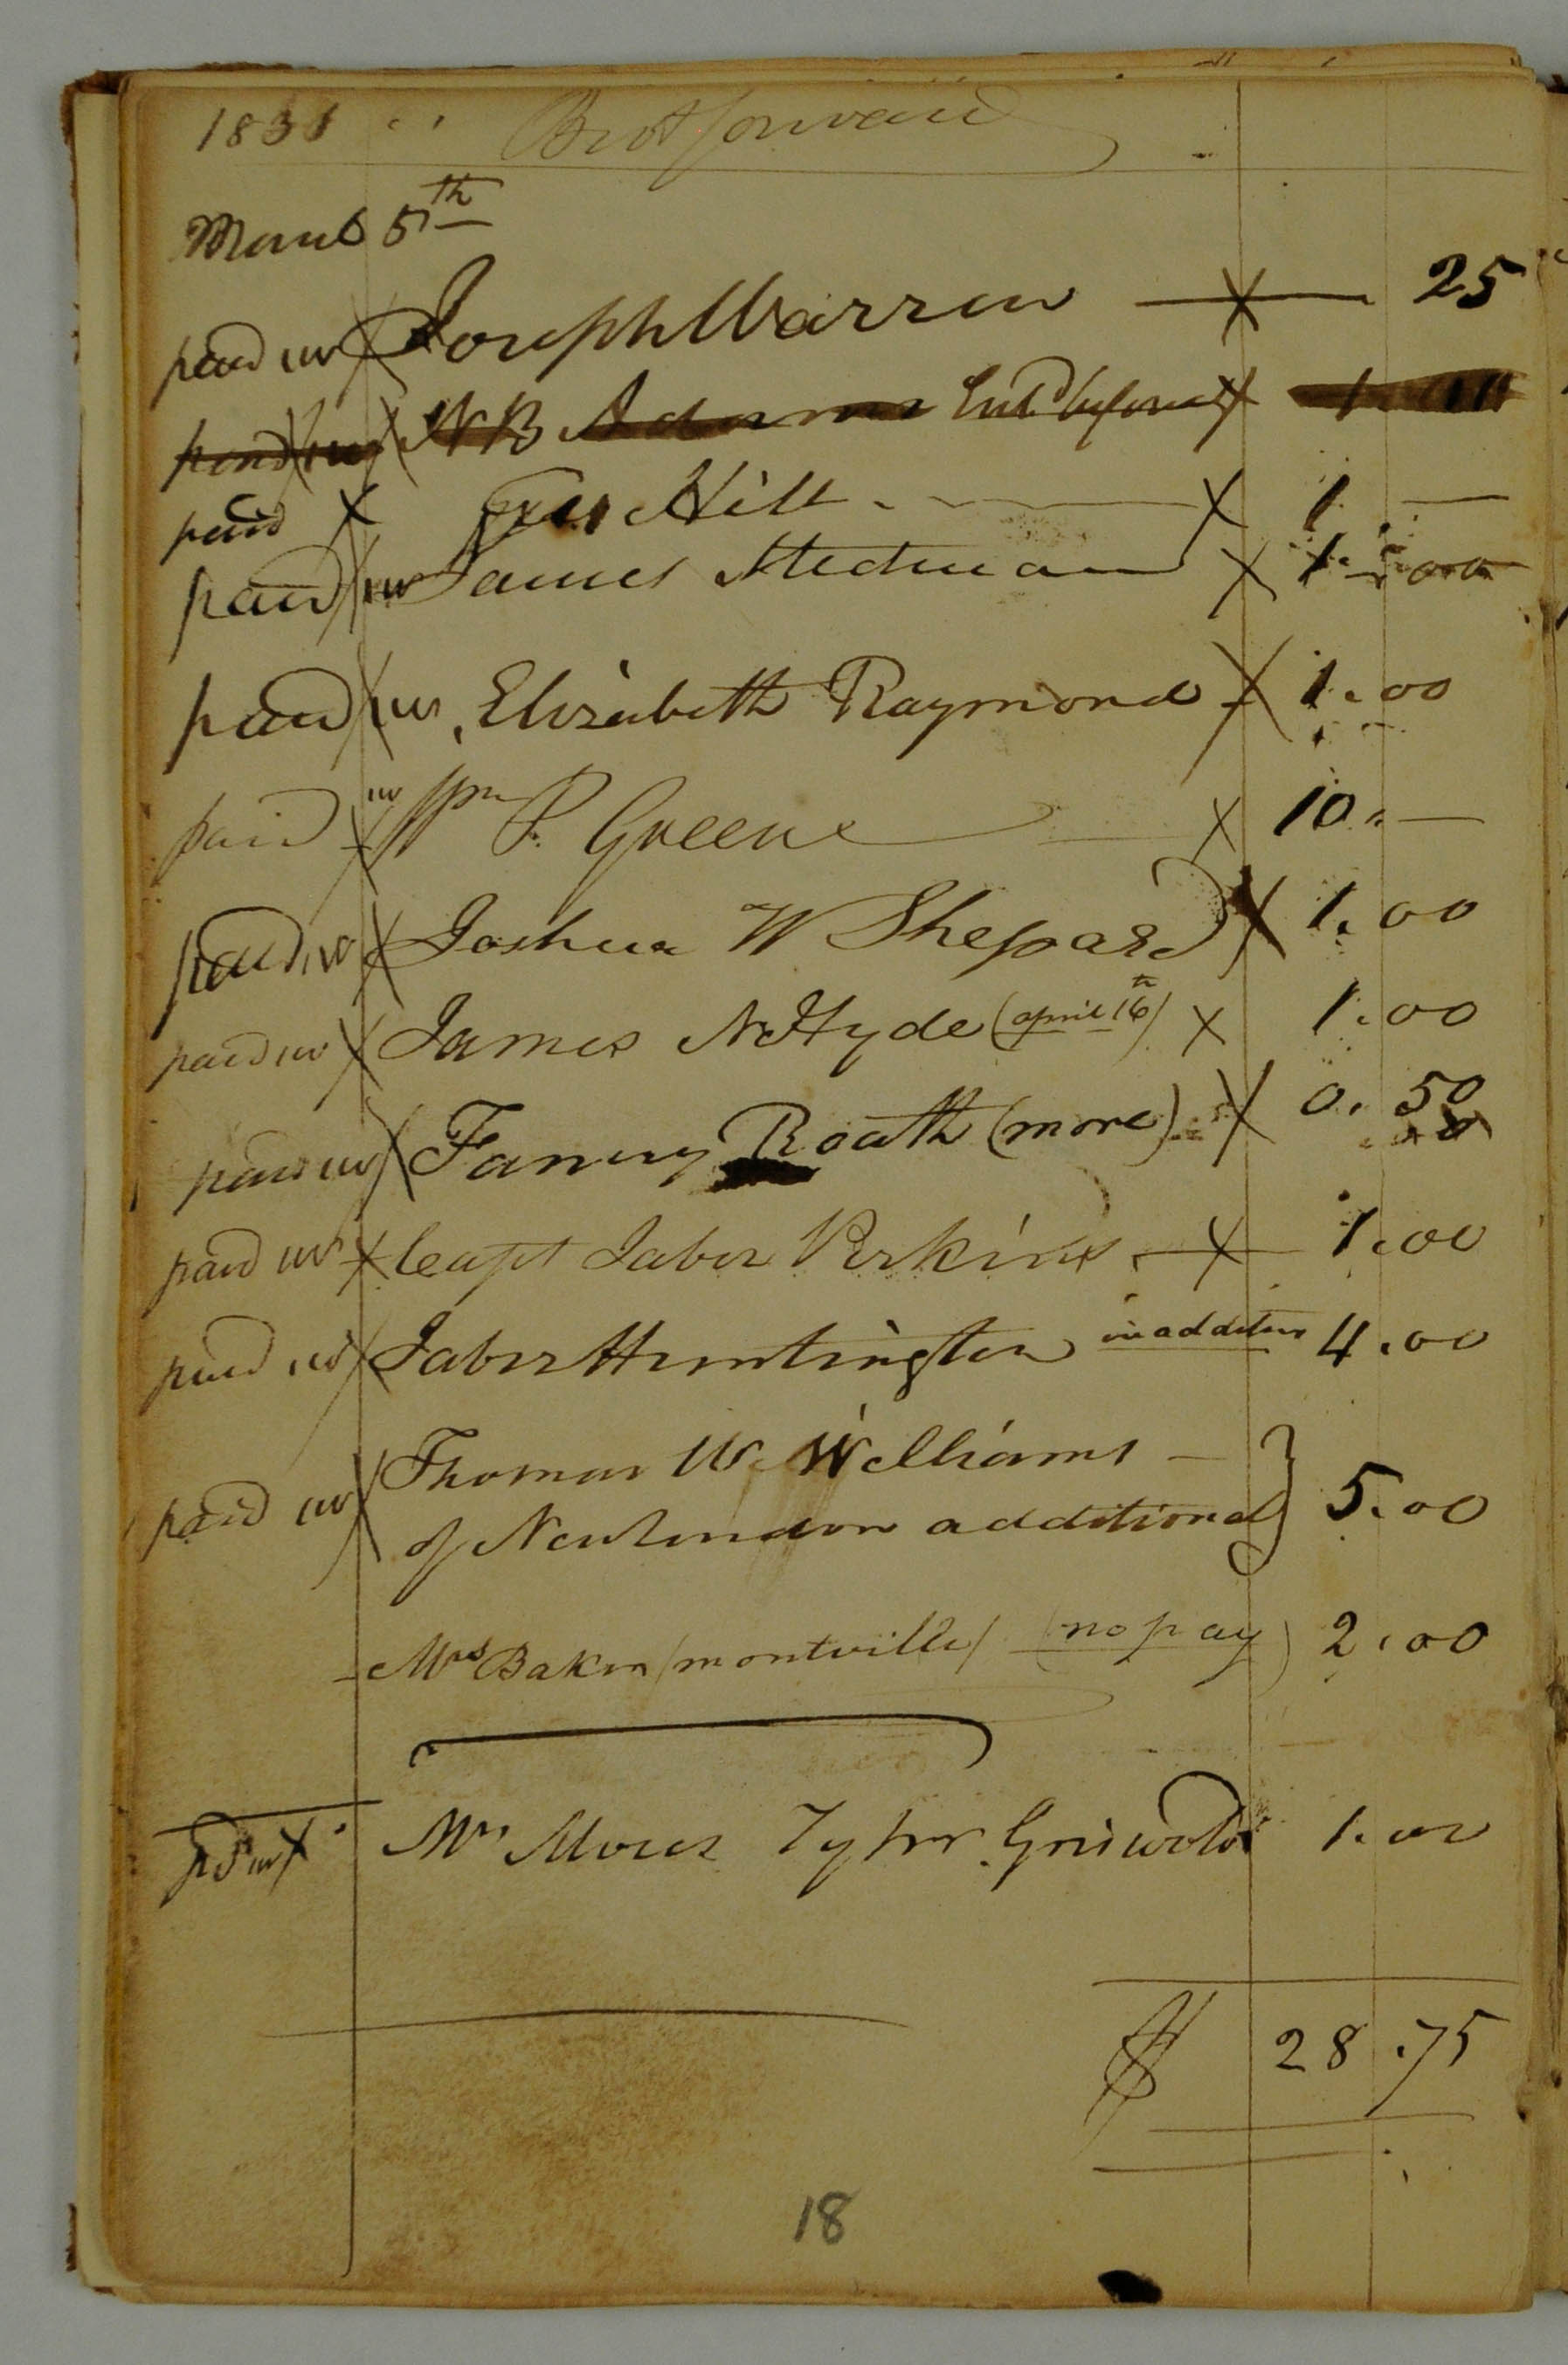 1831 Brot forward
March 5th
paid Joseph Warren 25
paid N B Adams Entd before 1.00
paid Hill 1 —
paid James Stedman 1.00
paid Elizabeth Raymond 1.00
paid Wm P. Greene 10. —
paid Joshua W Shepard 1.00
paid James N Hyde (april 16th) 1.00
paid Fanny Roath (more) 0.50
paid Capt Jabez Perkins 1.00
paid Jabez Huntington in addition 4.00
Thomas W. Williams —
paid of New London additional 5.00
Mrs Baker (montville) (no pay) 2.00
pd Mrs Moses Tyler Griswold 1.00
$ 28.75
18